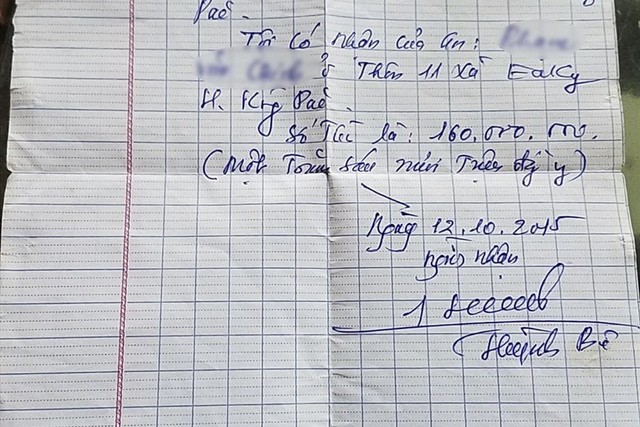 Pắc.
Tôi có nhận của ông:
ở Thôn 11 xã EaKly
H. Krông Pắc.
Số Tiền là: 160.000.000.
(Một Trăm Sáu mươi Triệu đồng y)
Ngày 12.10.2015
người nhận
Huỳnh Bê